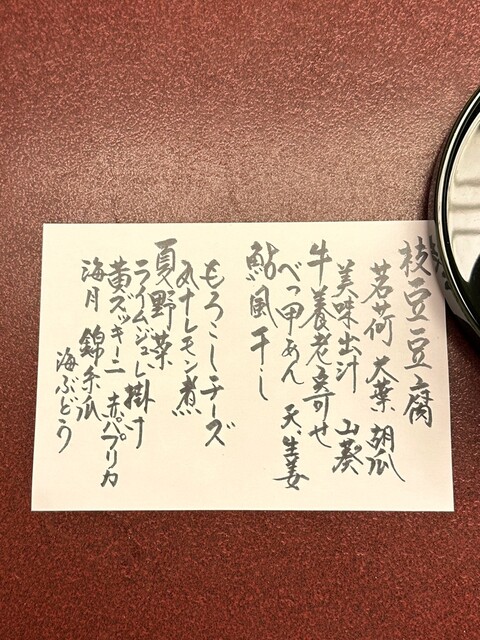 枝豆豆腐
茗荷 大葉 胡瓜
美味出汁 山葵
牛養老寄せ
べっ甲あん 天生姜
鮎風干し
もろこしチーズ
丸十レモン煮
夏野菜
ライムジュレ掛け
黄ズッキーニ 赤パプリカ
海月 錦糸瓜
海ぶどう